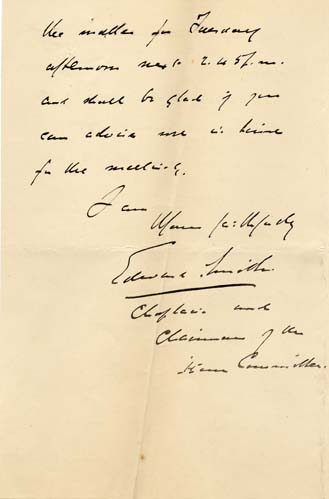 the matter for Tuesday
afternoon next 2.45 p.m.
and shall be glad if you
can advise me in time
for the meeting.
I am
Yours faithfully
Edward Smith.
Chaplain and
Chairman of the
Committee.